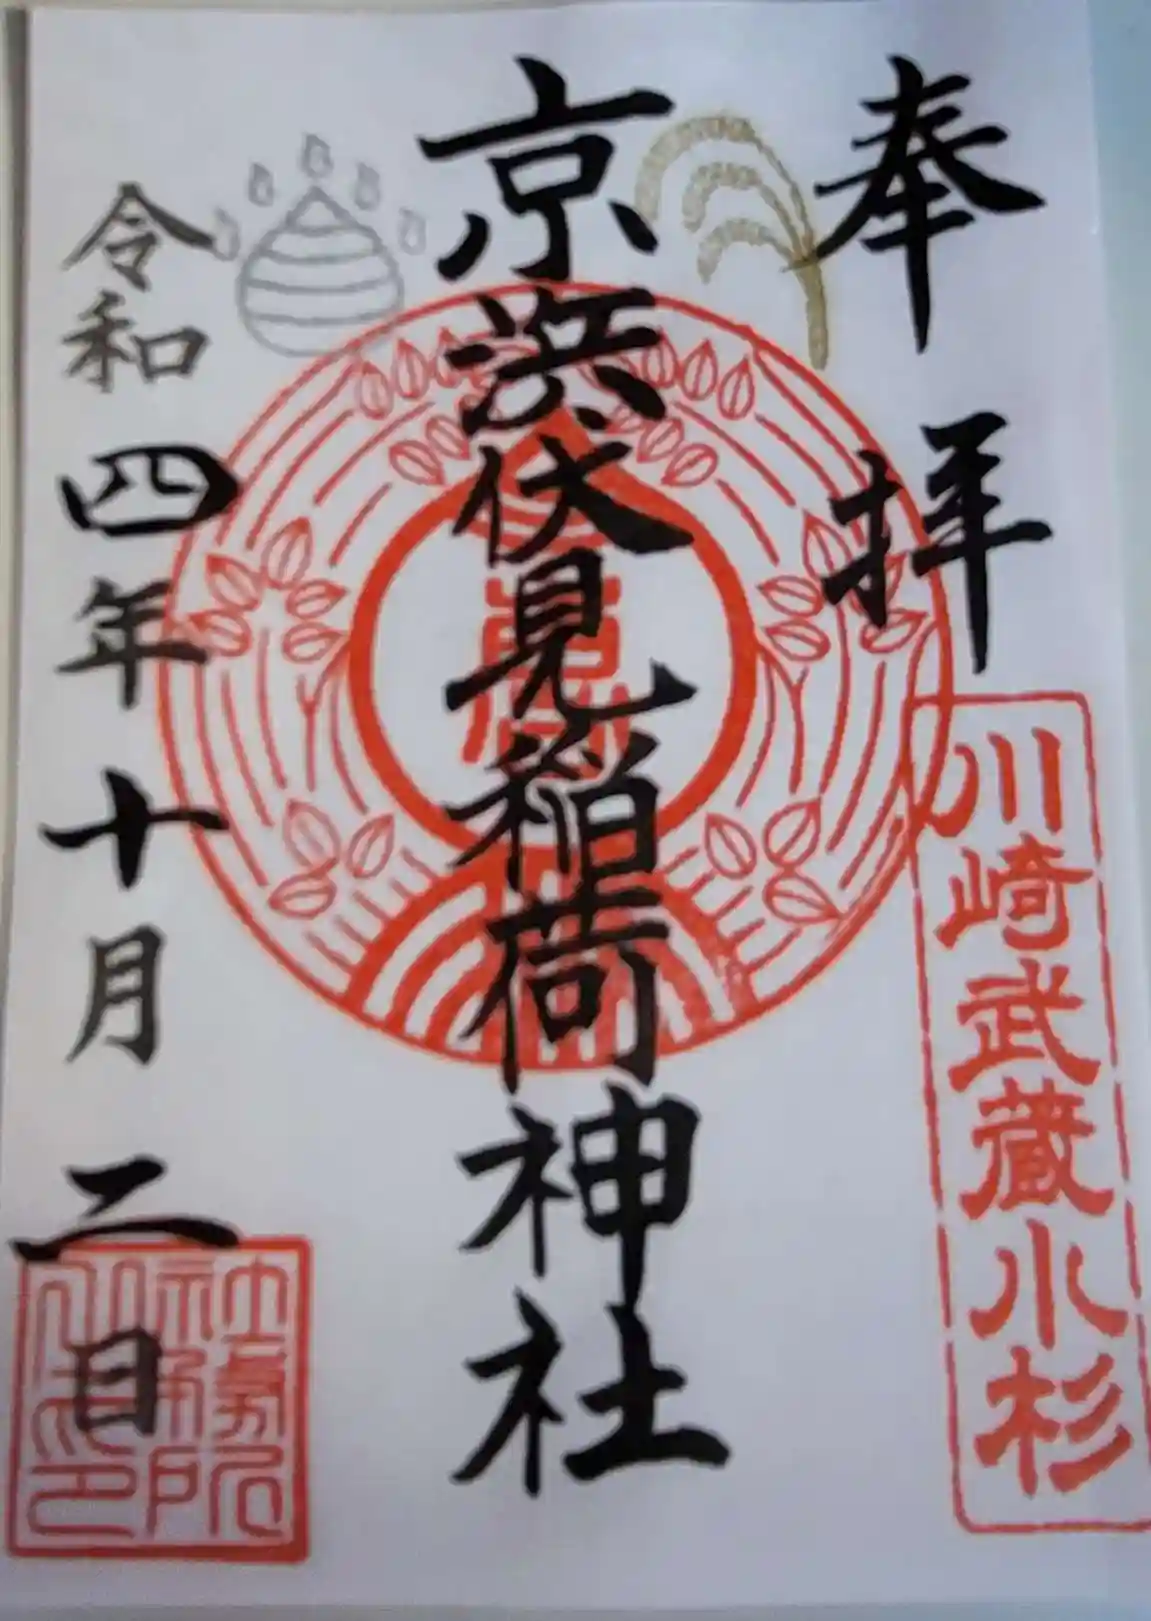 奉拝
川崎武蔵小杉
京浜伏見稲荷神社
令和四年十月二日
社務所